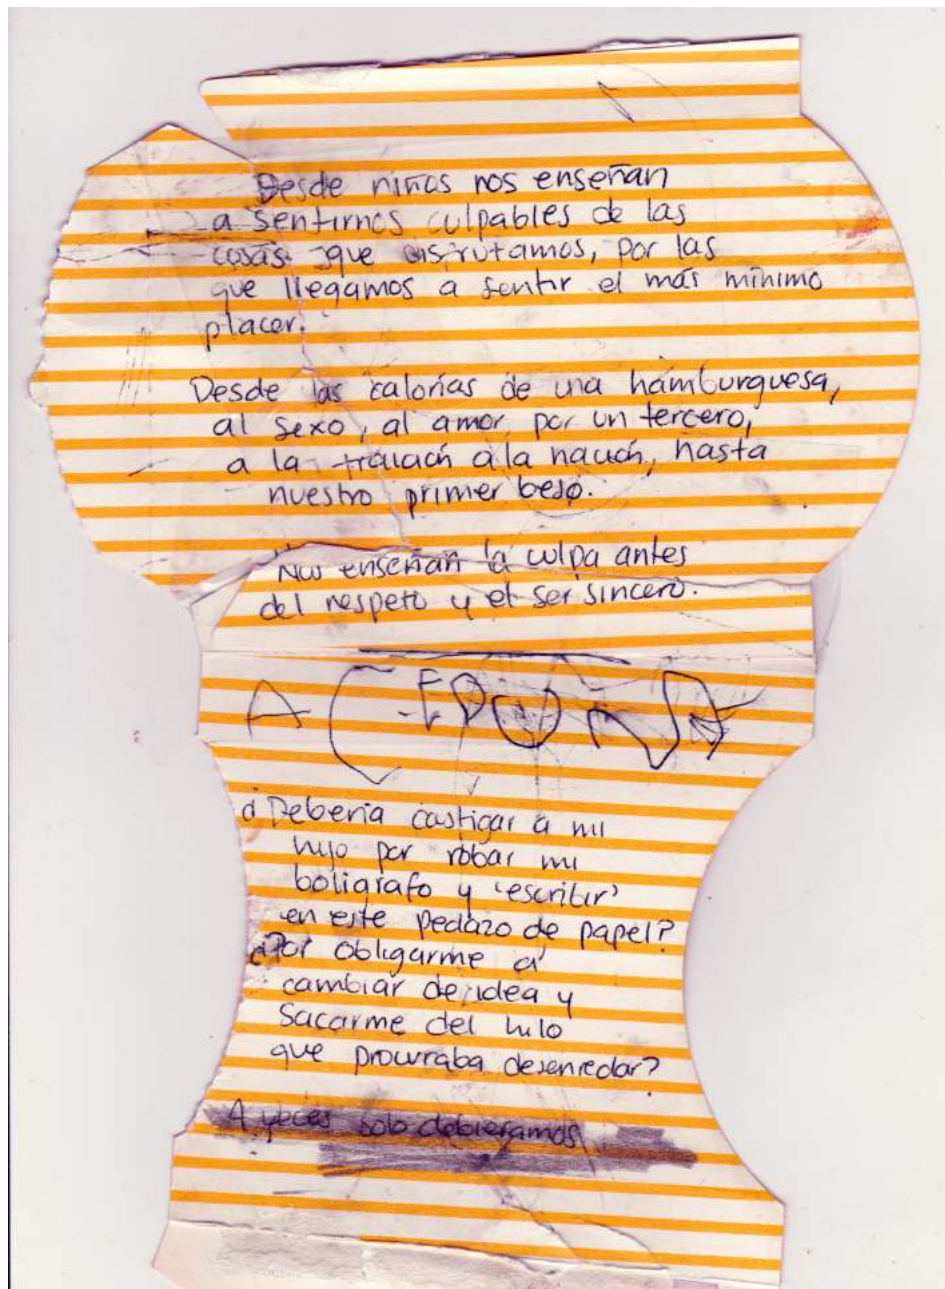 Desde niños nos enseñan
a sentirnos culpables de las
cosas que disfrutamos, por las
que llegamos a sentir el más mínimo
placer.
Desde las calorías de una hamburguesa,
al sexo, al amor por un tercero,
a la traición a la nación, hasta
nuestro primer beso.
Nos enseñan la culpa antes
del respeto y el ser sincero.
¿Debería castigar a mi
hijo por robar mi
boligrafo y 'escribir'
en este pedazo de papel?
¿Por obligarme a
cambiar de idea y
sacarme del hilo
que procuraba desenredar?
A veces solo debieramos